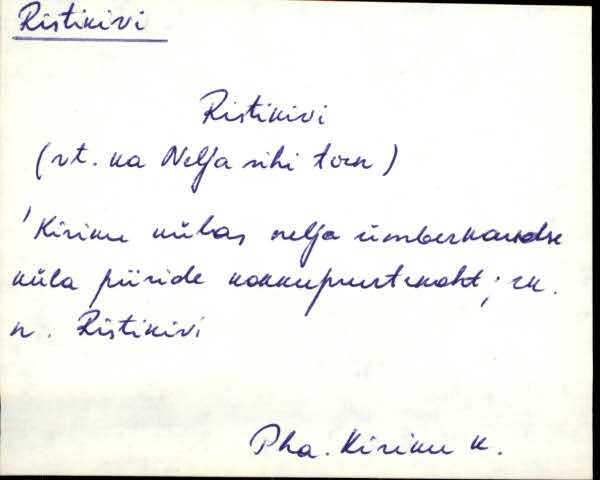 Ristikivi
Ristikivi
(vt. ka Nelja sihi
'Kiriku külas nelja ümberkaudse
küla piiride kokkupuutekoht;
n. Ristikivi
Pha. Kiriku k.